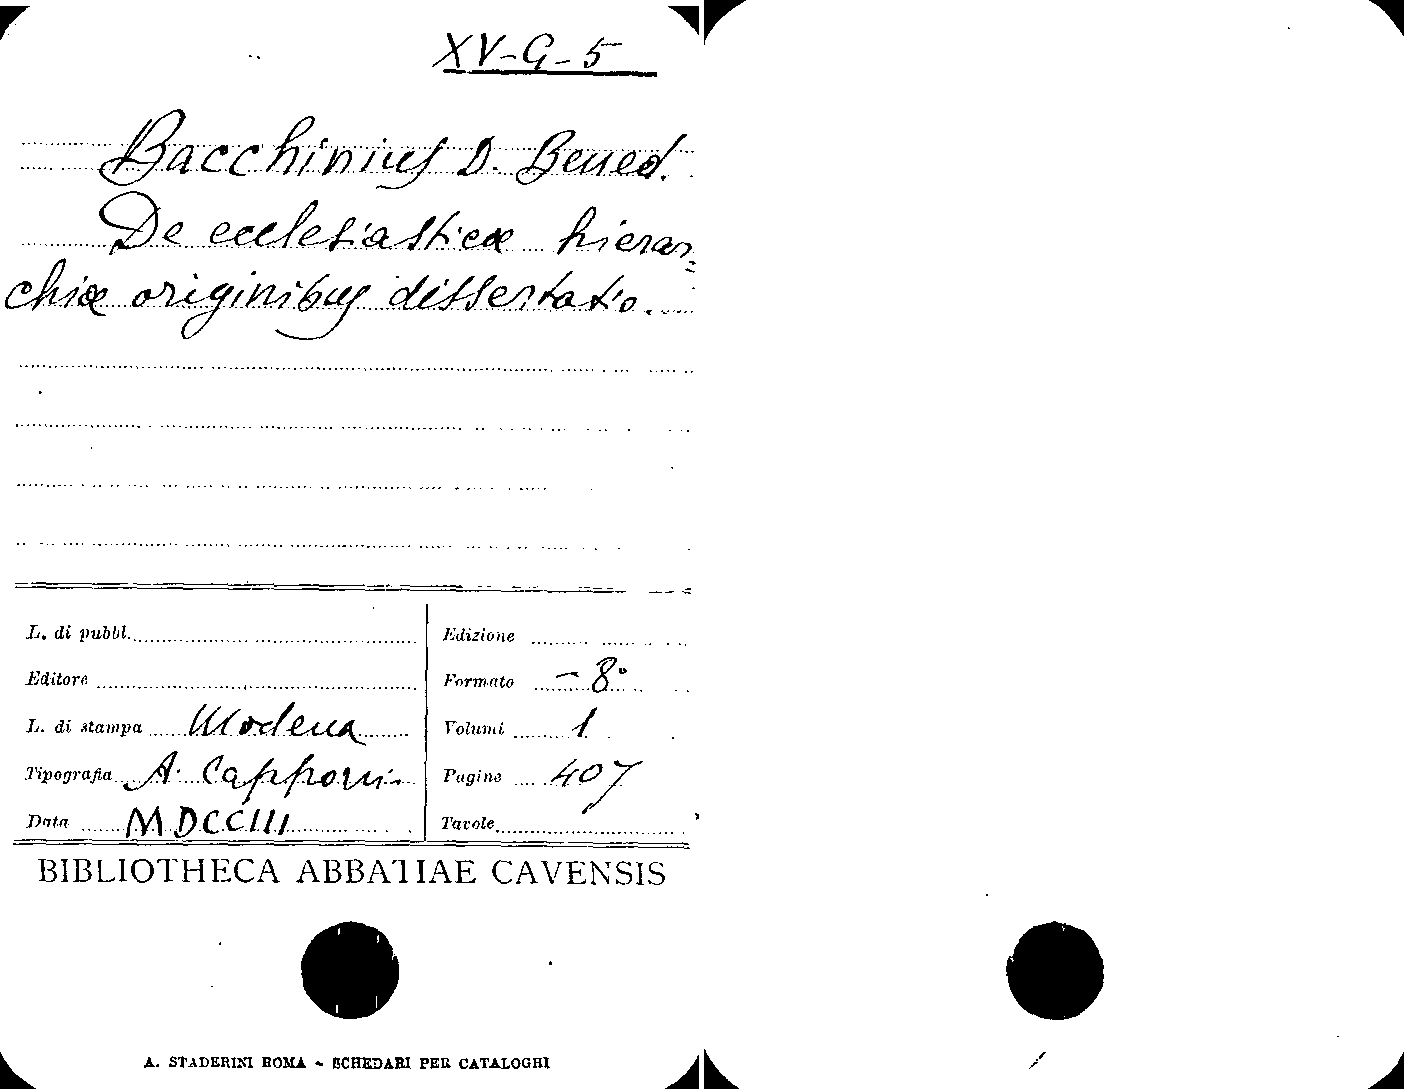 XV-G-5
Bacchinius D. Bened.
De ecclesiasticæ hierar=
chiæ originibus dissertatio.
L. di pubbl.
Edizione
Editore
Formato - 8°
L. di stampa Modena
Volumi 1
Tipografia A. Capponi
Pagine 407
Data MDCCIII
Tavole
BIBLIOTHECA ABBATIAE CAVENSIS
A. STADERINI ROMA - SCHEDARI PER CATALOGHI